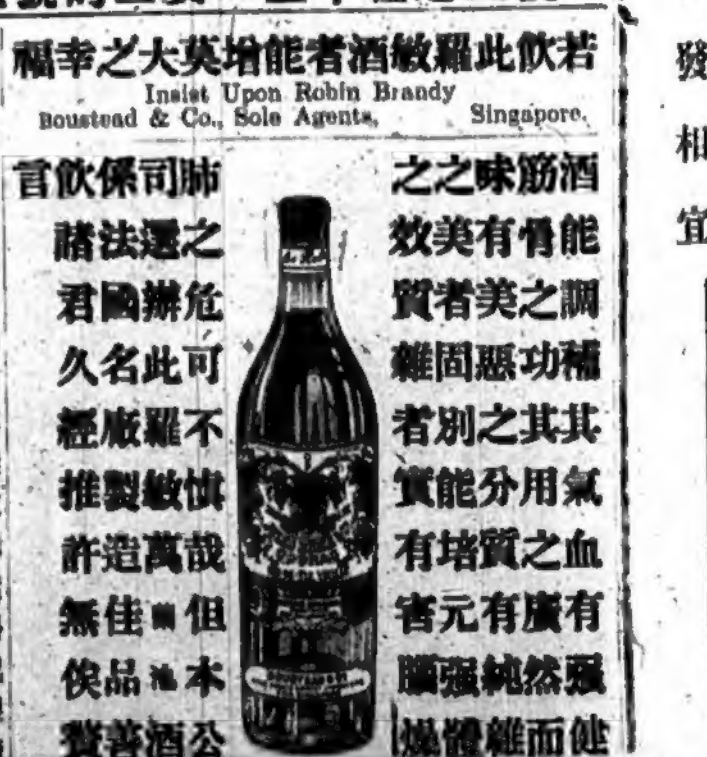 若飲此羅敏酒者能增莫大之幸福
Insist Upon Robin Brandy
Boustead & Co., Sole Agents, Singapore.
酒能調補其氣血有强健
筋骨之功其用之廣然而
味有美惡之分質有純雜
之美者固別能培元强體
之效質雜者實有害腦燥
肺之危可不慎哉但本公
司選辦此羅敏萬蘭池酒
係法國名廠製造佳品善
飲諸君久經推許無俟贅
言
發相宜